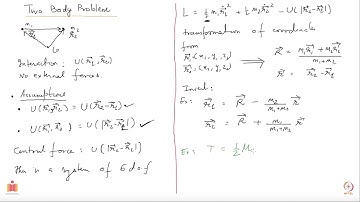 Two Body Problem
m₁
m₂
Interaction: U(r⃗₁, r⃗₂)
No external forces.
• Assumptions
• U(r⃗₁, r⃗₂) = U(r⃗₂-r⃗₁) ✓
• U(r⃗₁, r⃗₂) = U(|r⃗₂-r⃗₁|) ✓
Central force: U(|r⃗₂-r⃗₁|)
This is a system of 6 d.o.f
L = ½ m₁ ṙ⃗₁² + ½ m₂ ṙ⃗₂² - U(|r⃗₂-r⃗₁|)
transformation of coordinates
from
r⃗₁: (x₁, y₁, z₁)
⟹ R⃗ = (m₁r⃗₁ + m₂r⃗₂)/(m₁+m₂)
r⃗ = r⃗₂ - r⃗₁
Invert:
Ex: r⃗₁ = R⃗ - m₂/(m₁+m₂) r⃗
r⃗₂ = R⃗ + m₁/(m₁+m₂) r⃗
Ex: T = ½ M